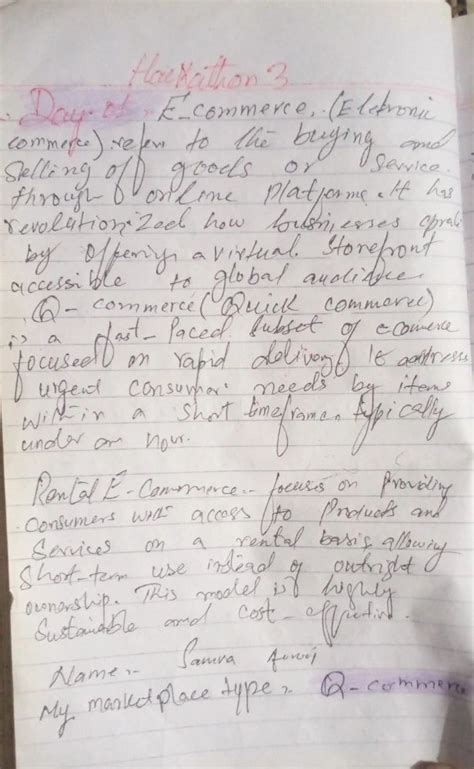 Hackathon 3
Day 01 :- E-commerce. (Eletronic
commerce) refers to the buying and
Selling of goods or Service.
through online Platforms. It has
revolutionized how businesses
by offering a virtual. Storefront
accessible to global audience.
Q- commerce (Quick commerce)
is a fast-Paced Subset of
focused on rapid delivery. It address
urgent consumer needs by items
within a short timeframe. typically
under an hour.
Rental E-Commerce.- focuses on Providing
Consumers with access to Products and
Services on a rental basis, allowing
Short-term use instead of outright
ownership. This model is highly
Sustainable and cost-effective.
Name:-
My marketplace type :- Q-commerce